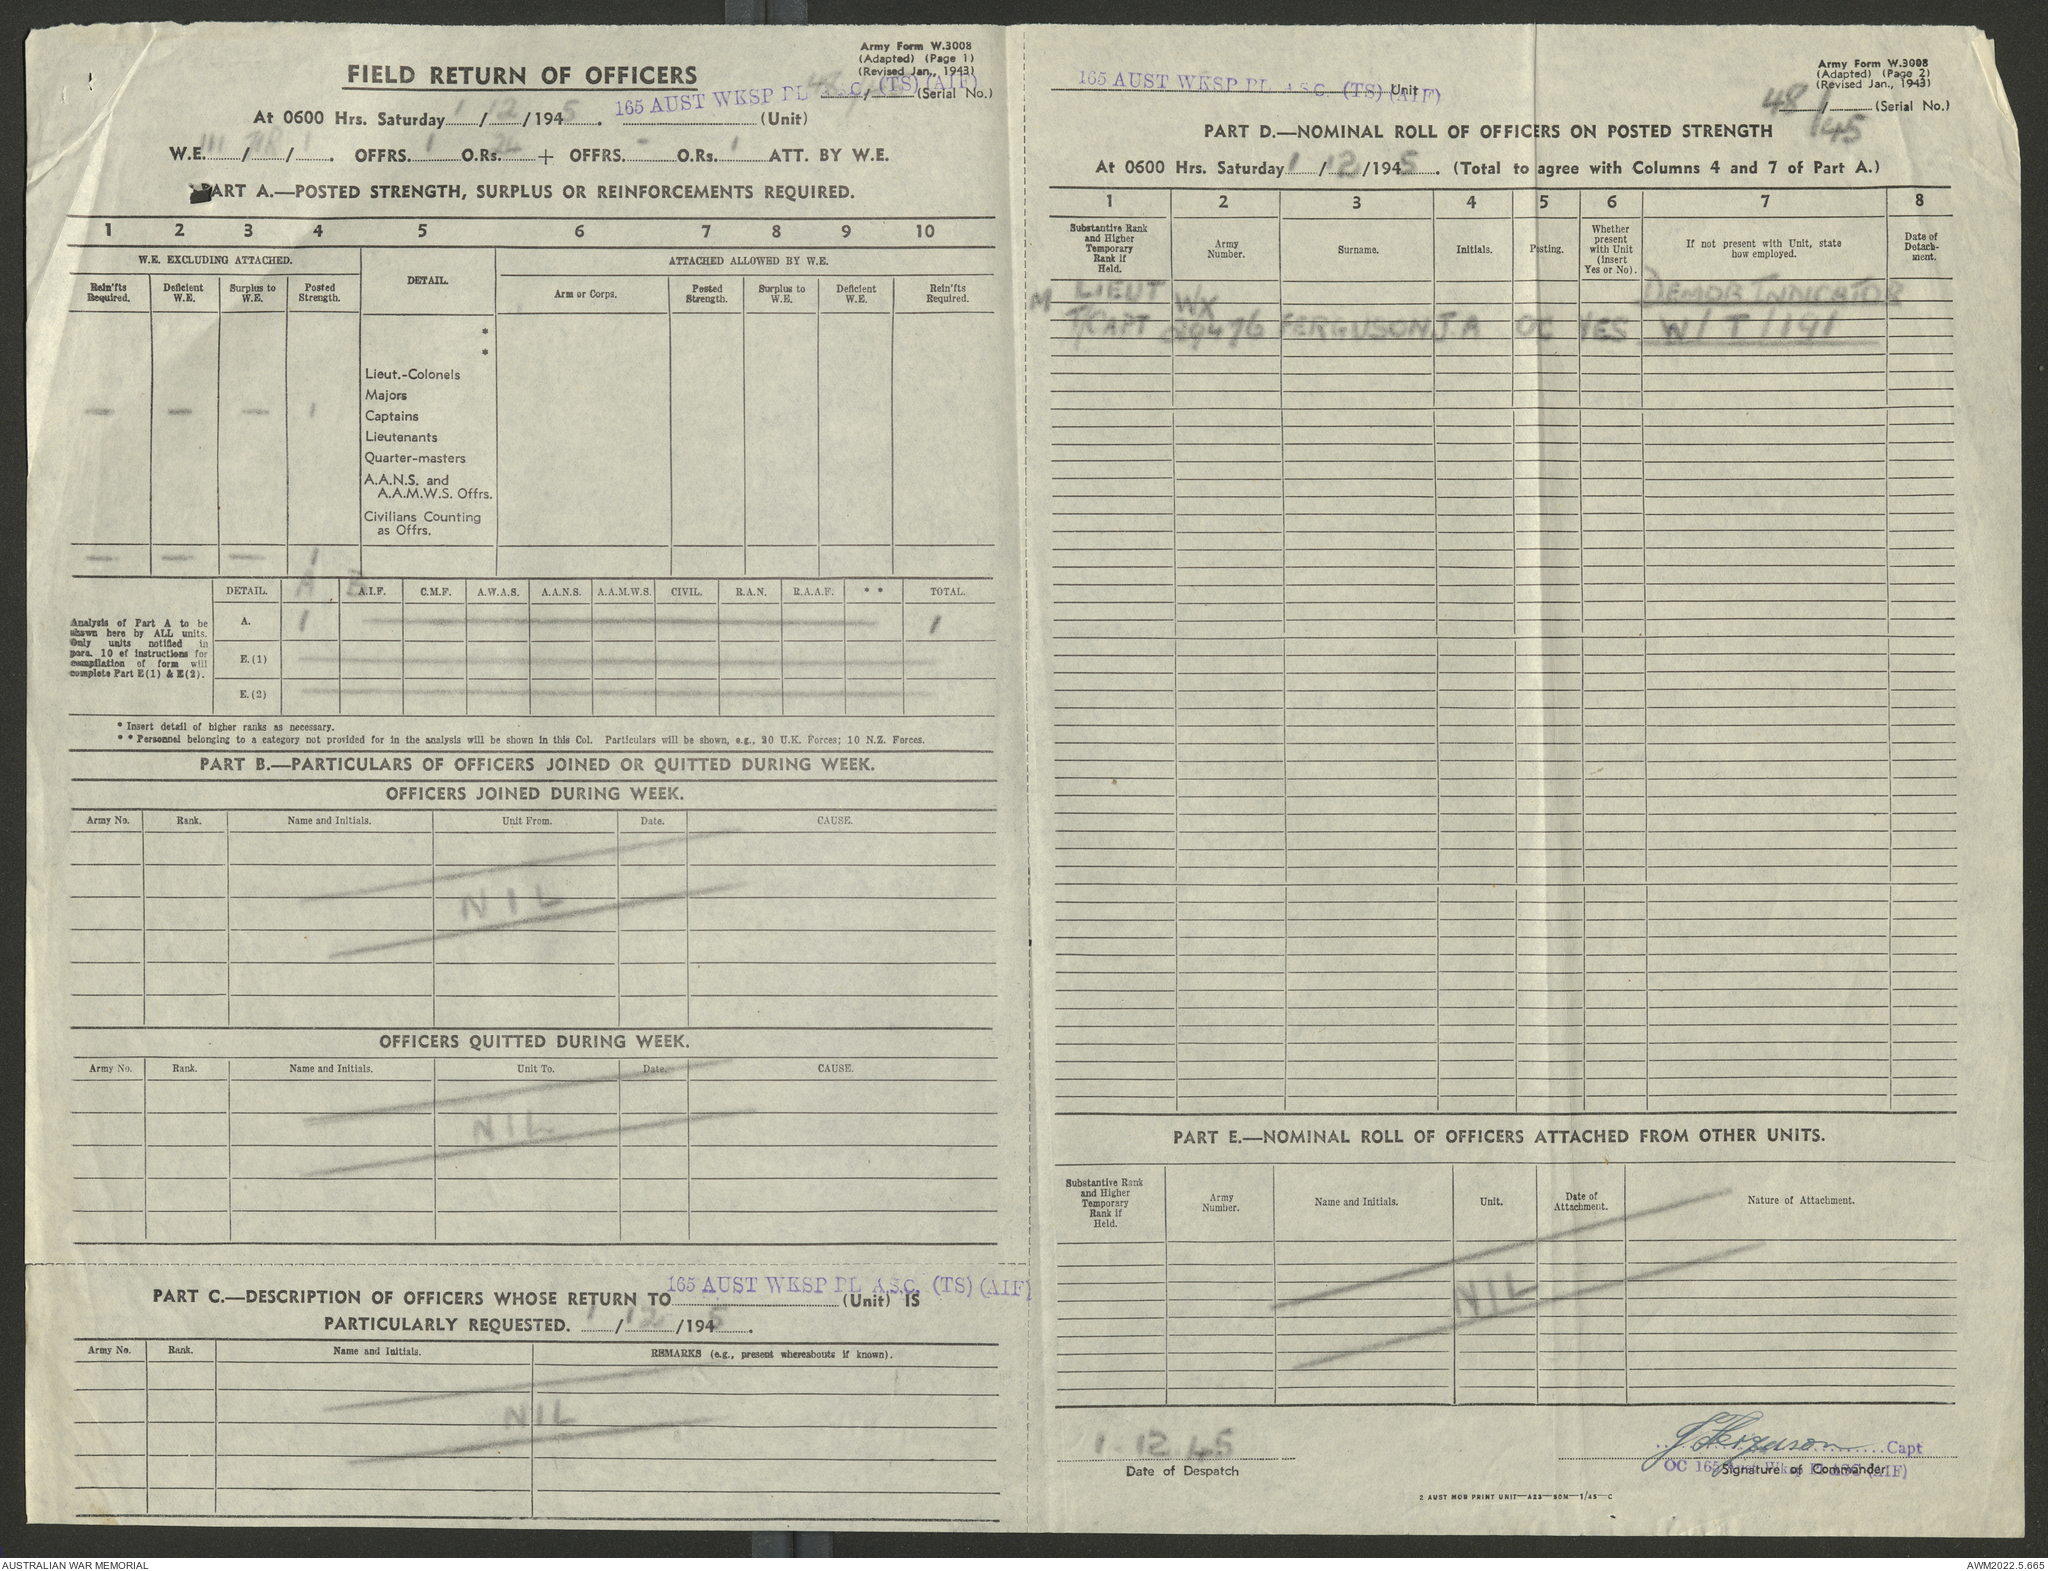 Army Form W.3008
(Adapted) (Page 1)
(Revised Jan., 1943)
FIELD RETURN OF OFFICERS
165 AUST WKSP PL A.S.C. (TS) (AIF)
48/45 (Serial No.)
At 0600 Hrs. Saturday 1/12/1945. (Unit)
W.E. III /1 OFFRS. 1 O.Rs. 24 + OFFRS. - O.Rs. 1 ATT. BY W.E.
PART A.—POSTED STRENGTH, SURPLUS OR REINFORCEMENTS REQUIRED.
1 2 3 4 5 6 7 8 9 10
W.E. EXCLUDING ATTACHED. DETAIL. ATTACHED ALLOWED BY W.E.
Rein'fts Required. Deficient W.E. Surplus to W.E. Posted Strength. Arm or Corps. Posted Strength. Surplus to W.E. Deficient W.E. Rein'fts Required.
*
*
Lieut.-Colonels
Majors
— — — 1 Captains
Lieutenants
Quarter-masters
A.A.N.S. and
A.A.M.W.S. Offrs.
Civilians Counting
as Offrs.
— — — 1
DETAIL. A E A.I.F. C.M.F. A.W.A.S. A.A.N.S. A.A.M.W.S. CIVIL. R.A.N. R.A.A.F. * * TOTAL.
A. 1 1
E.(1)
E.(2)
Analysis of Part A to be
shown here by ALL units.
Only units notified in
para. 10 of instructions for
compilation of form will
complete Part E(1) & E(2).
* Insert detail of higher ranks as necessary.
* * Personnel belonging to a category not provided for in the analysis will be shown in this Col. Particulars will be shown, e.g., 20 U.K. Forces; 10 N.Z. Forces.
PART B.—PARTICULARS OF OFFICERS JOINED OR QUITTED DURING WEEK.
OFFICERS JOINED DURING WEEK.
Army No. Rank. Name and Initials. Unit From. Date. CAUSE.
NIL
OFFICERS QUITTED DURING WEEK.
Army No. Rank. Name and Initials. Unit To. Date. CAUSE.
NIL
165 AUST WKSP PL A.S.C. (TS) (AIF)
PART C.—DESCRIPTION OF OFFICERS WHOSE RETURN TO (Unit) IS
PARTICULARLY REQUESTED. 1/12/1945.
Army No. Rank. Name and Initials. REMARKS (e.g., present whereabouts if known).
NIL
Army Form W.3008
(Adapted) (Page 2)
(Revised Jan., 1943)
165 AUST WKSP PL A.S.C. (TS) (AIF) Unit
48/45 (Serial No.)
PART D.—NOMINAL ROLL OF OFFICERS ON POSTED STRENGTH
At 0600 Hrs. Saturday 1/12/1945. (Total to agree with Columns 4 and 7 of Part A.)
1 2 3 4 5 6 7 8
Substantive Rank and Higher Temporary Rank if Held. Army Number. Surname. Initials. Posting. Whether present with Unit (insert Yes or No). If not present with Unit, state how employed. Date of Detach-ment.
M LIEUT WX DEMOB INDICATOR
T/CAPT 29476 FERGUSON J.A OC YES W/T/191
PART E.—NOMINAL ROLL OF OFFICERS ATTACHED FROM OTHER UNITS.
Substantive Rank and Higher Temporary Rank if Held. Army Number. Name and Initials. Unit. Date of Attachment. Nature of Attachment.
NIL
1.12.45
Date of Despatch
J Ferguson Capt
OC 165 Aust Wksp Pl ASC (AIF)
Signature of Commander
2 AUST MOB PRINT UNIT—A23—50M—1/45—C
AUSTRALIAN WAR MEMORIAL
AWM2022.5.665